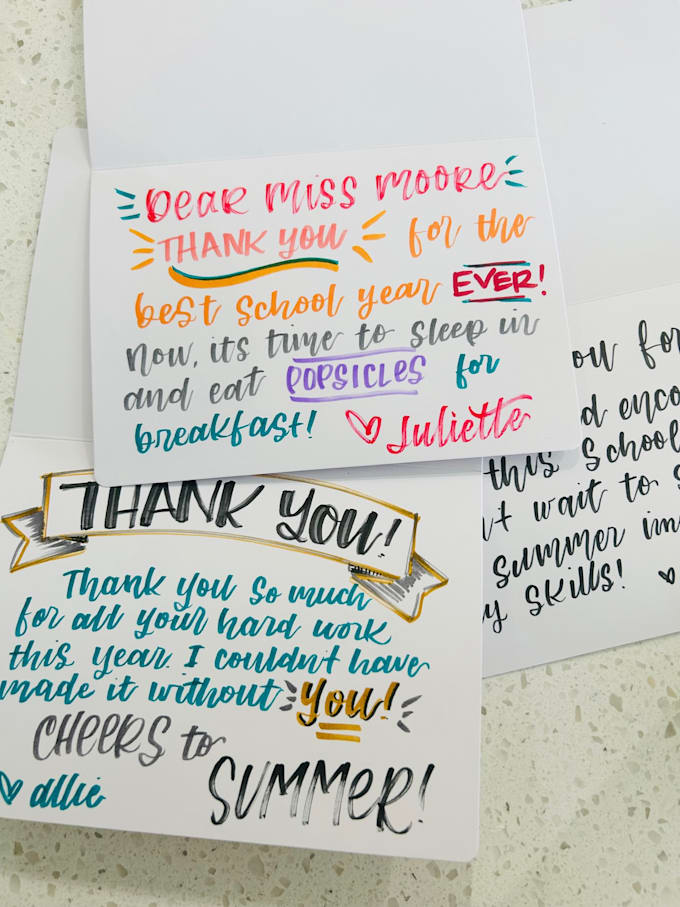 Dear Miss Moore
THANK YOU for the
best school year EVER!
now, it's time to sleep in
and eat POPSICLES for
breakfast!
Juliette
THANK YOU!
Thank you so much
for all your hard work
this year. I couldn't have
made it without You!
CHEERS to
SUMMER!
allie
for
this school
wait to
summer
SKILLS!